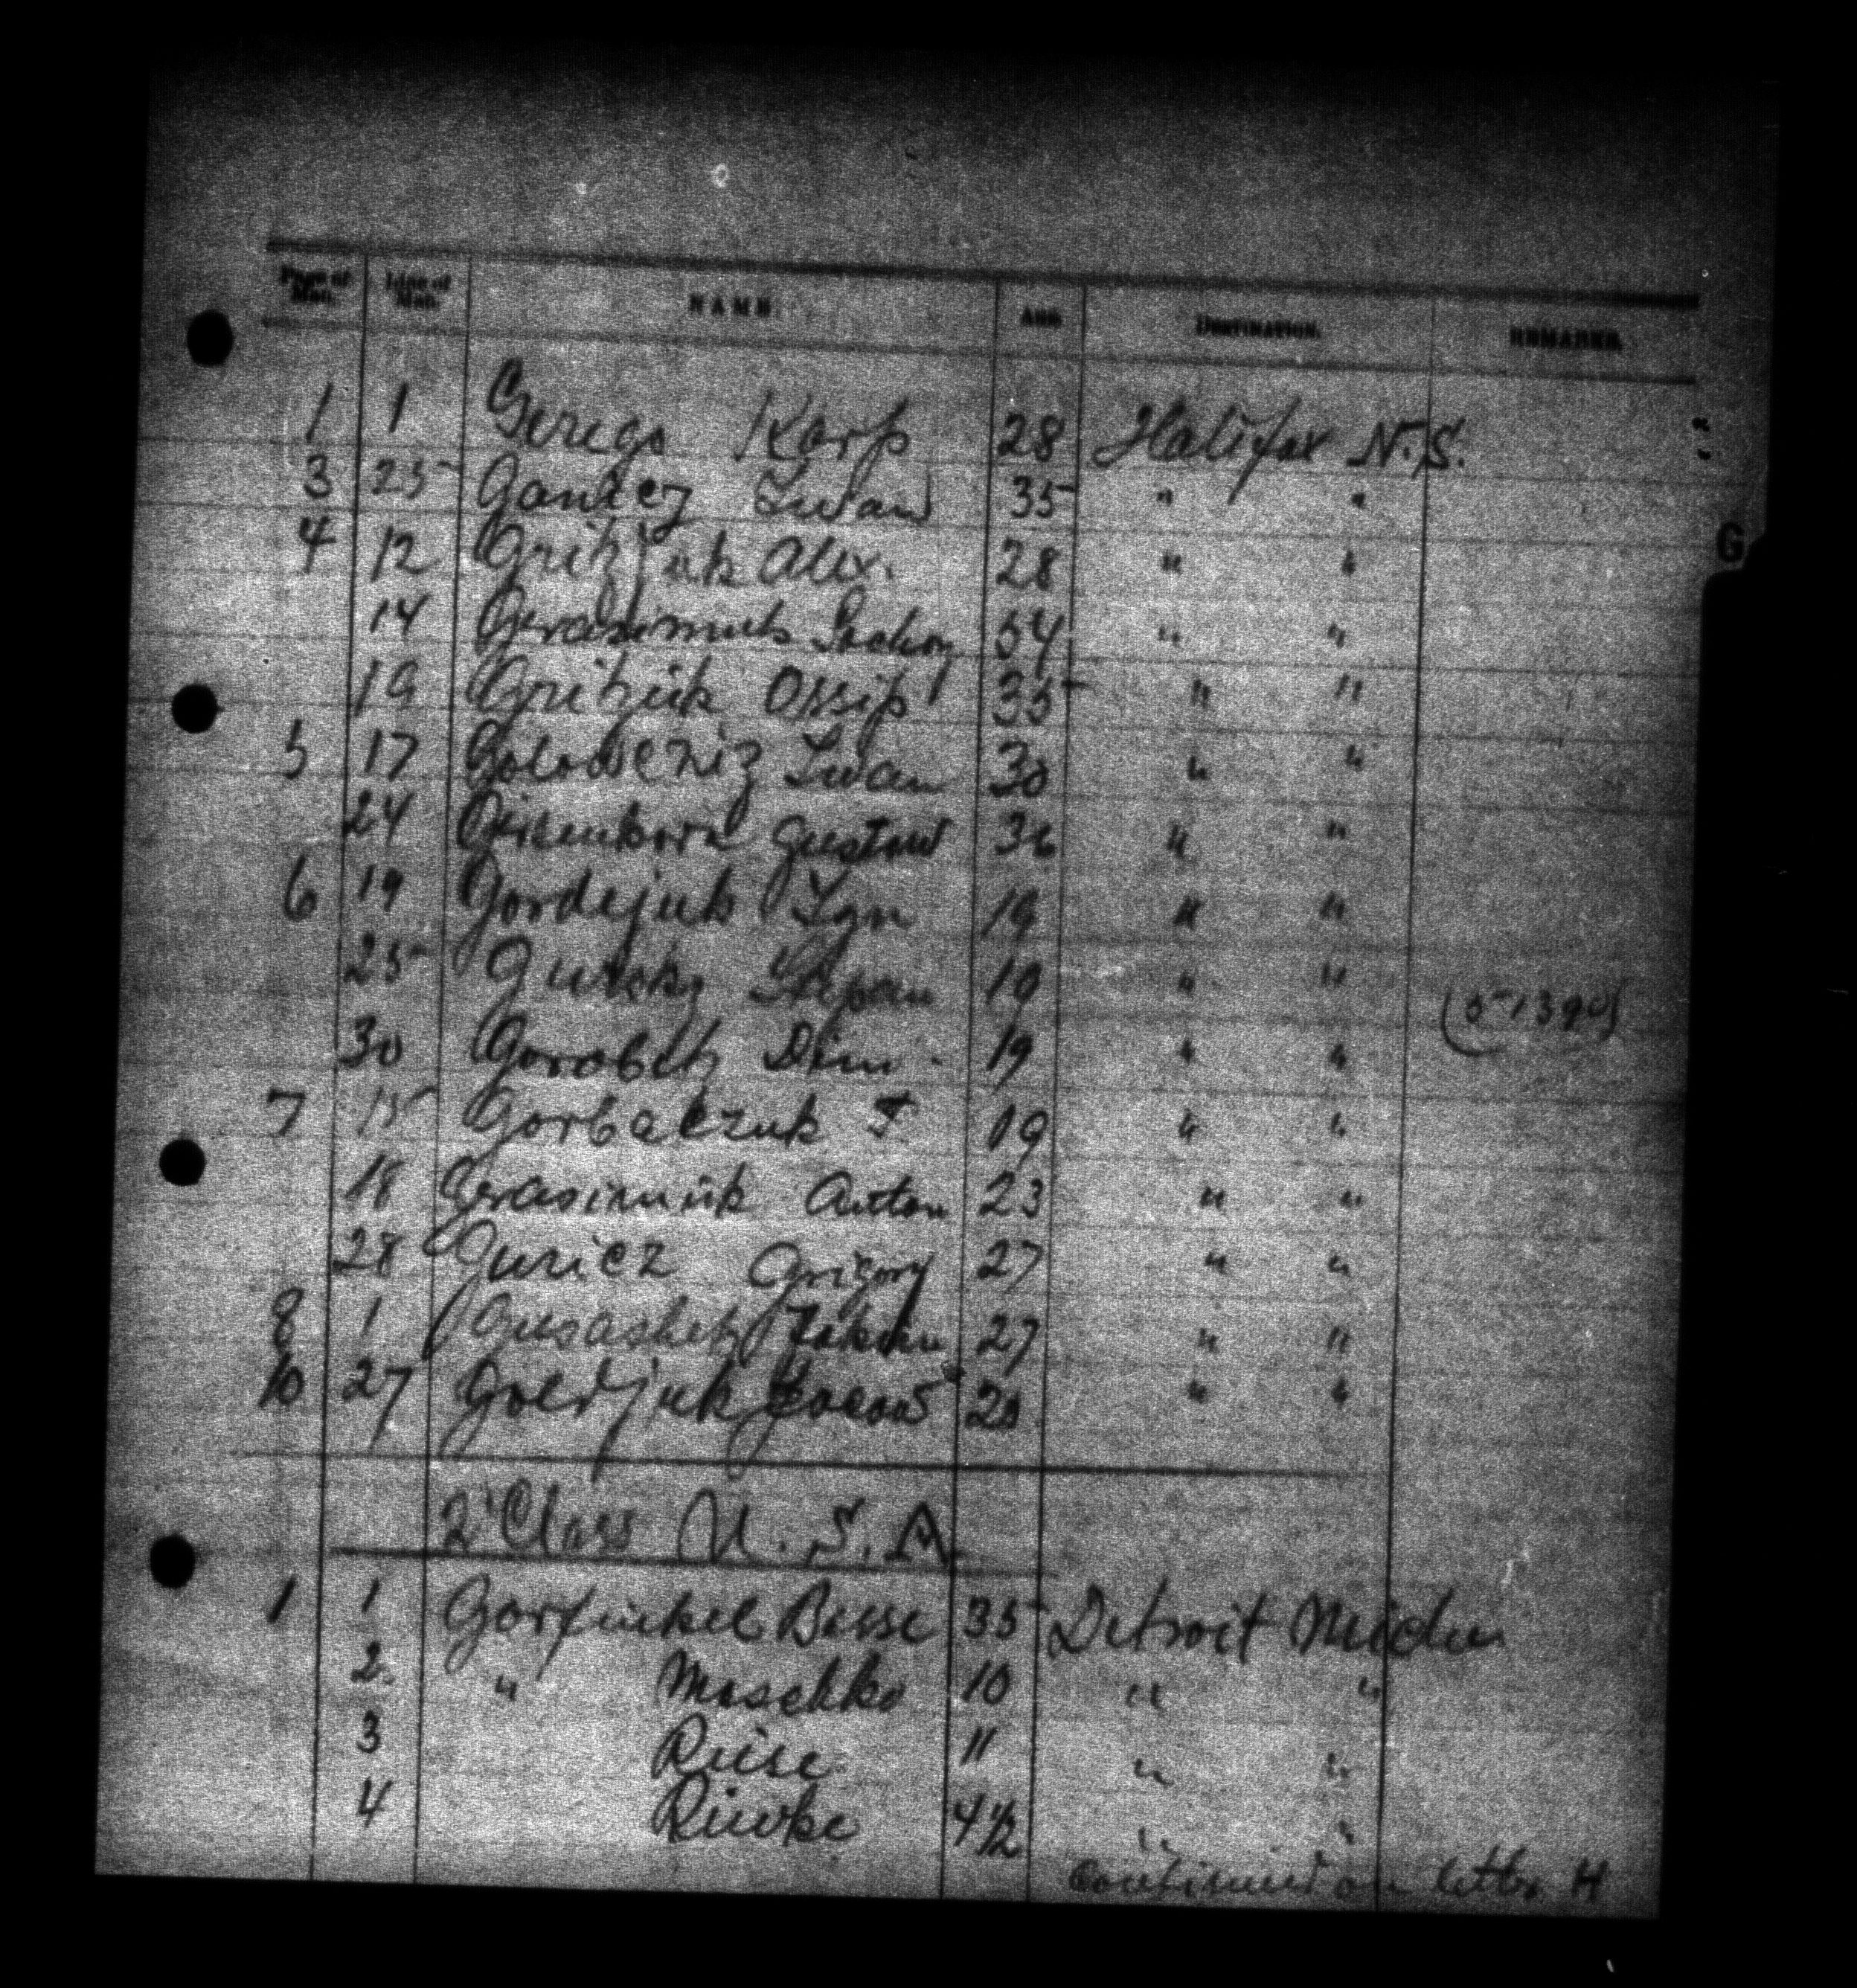 Page of Man. Line of Man. NAME. AGE. DESTINATION. REMARKS.
1 1 Gerega Karp 28 Halifax N.S.
3 25 Iwan 35 " "
G
4 12 Gritzjuk Alex. 28 " "
14 Gerasimuk 54 " "
19 Gritzuk Ossip 35 " "
5 17 Golowcziz Iwan 30 " "
24 Gustav 36 " "
6 19 Gordejuk Ign 19 " "
25 Gutsky Stepan 19 " " (51390)
30 Gorobetz Dim. 19 " "
7 15 Gorbaczuk F 19 " "
18 Gerasimuk Anton 23 " "
28 Guricz Grigory 27 " "
8 1 27 " "
10 27 20 " "
2 Class U.S.A.
1 1 Gorfinkel Besse 35 Detroit Mich
2. " Moschko 10 " "
3 Reise 11 " "
4 Riwke 4 1/2 " "
continued on letter H